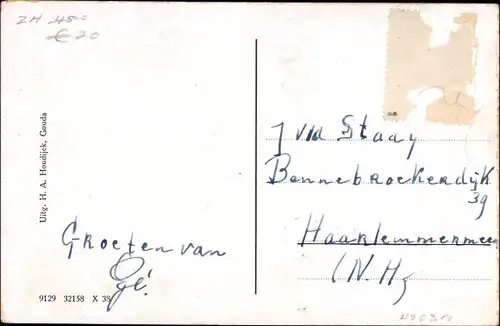 ZH 45=
€ 20
Uitg. H. A. Houdijck, Gouda
Groeten van
Gé!
9129 32158 X 38
J v/d Staay
Bennebroekerdijk
39
Haarlemmermeer
(N.H.)